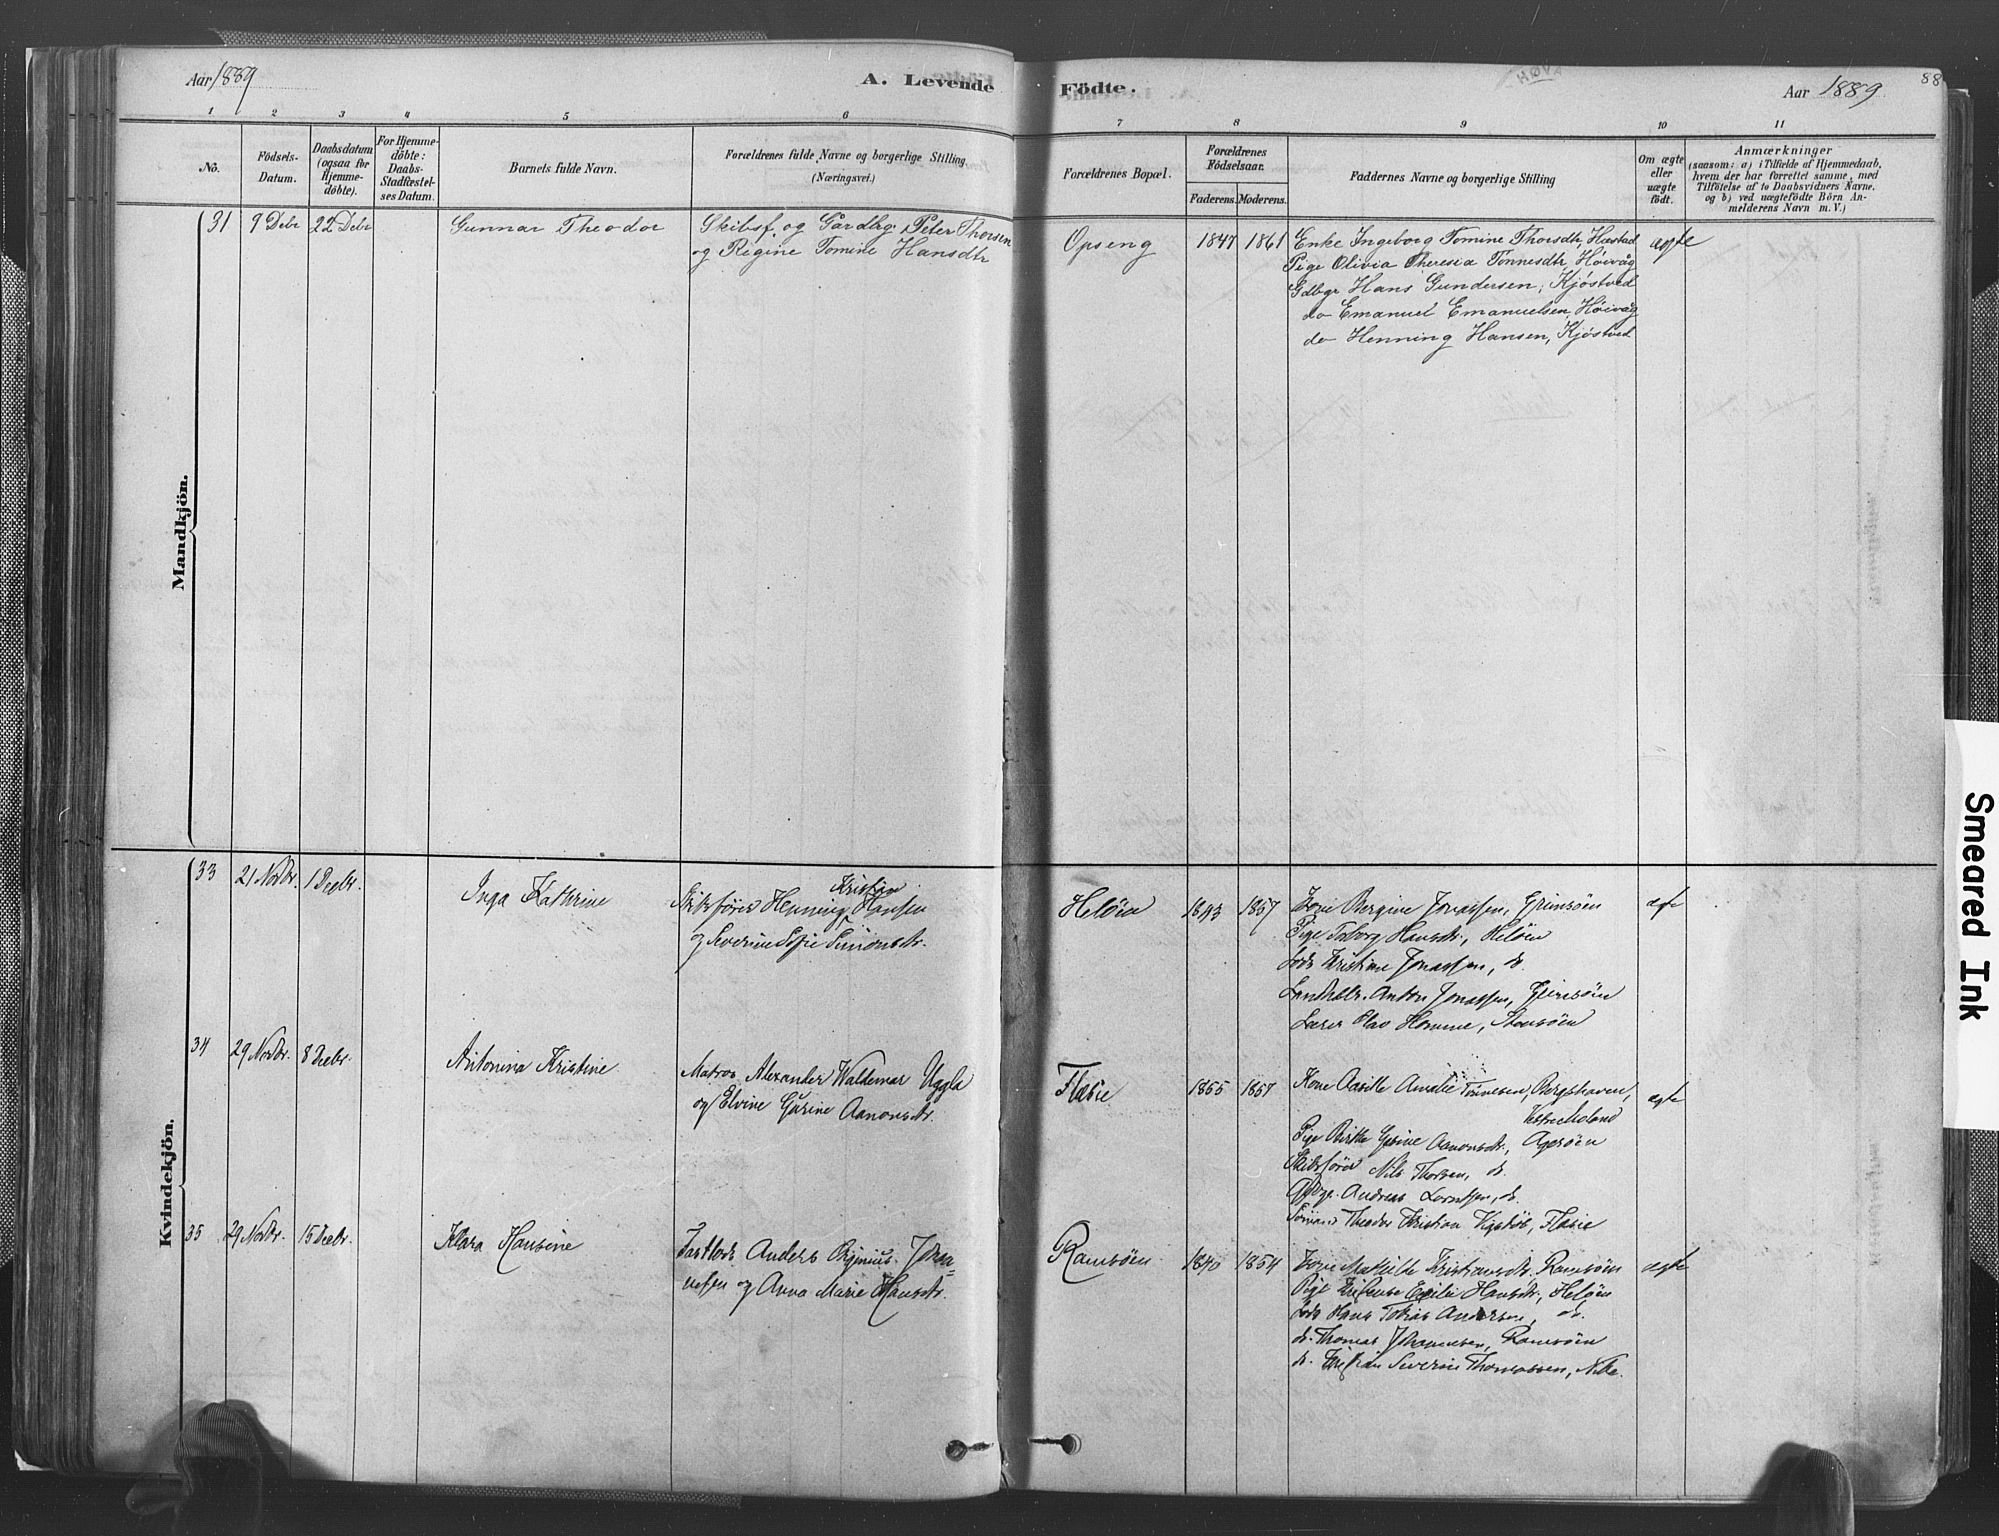 Aar 1889
A. Levende
Födte.
Aar 1889
88
1 2 3 4 5 6 7 8 9 10 11
No.
Födsels-
Datum.
Daabsdatum
(ogsaa for
Hjemme-
döbte).
For Hjemme-
döbte:
Daabs-
Stadfæstel-
ses Datum.
Barnets fulde Navn.
Forældrenes fulde Navne og borgerlige Stilling
(Næringsvei.)
Forældrenes Bopæl.
Forældrenes
Födselsaar.
Faderens.
Moderens.
Faddernes Navne og borgerlige Stilling
Om ægte
eller
uægte
födt.
Anmærkninger
(saasom: a) i Tilfælde af Hjemmedaab,
hvem der har forrettet samme, med
Tilföielse af to Daabsvidners Navne,
og b) ved uægtefödte Börn An-
melderens Navn m. V.)
Mandkjön.
31 9 Debr 22 Debr Gunnar Theodor
Skibsf. og Gardbrg. Peter Thorsen
og Regine Tomine Hansdtr
Opseng 1847 1861
Enke Ingeborg Tomine Thorsdtr, Hæstad
Pige Olivia Theresia Tønnesdtr, Høivåg
Gdbgr Hans Gundersen, Kjøstved
do Emanuel Emanuelsen, Høivåg
do Henning Hansen, Kjøstved
ægte
Kvindekjön.
33 21 Novbr. 1 Decbr. Inga Kathrine
Kristian
Skibsfører Henning Hansen
og Severine Sofie Simonsdtr.
Heløen 1843 1857
Kone Bergine Jonassen, Grimsøen
Pige Taborg Hansdtr., Heløen
Lods Kristian Jonassen, do.
Anton Jonassen, Grimsøen
Lærer Olav Homme,
ægte
34 29 Novbr. 8 Decbr. Antonina Kristine
Matros Alexander Waldemar Uggla
og Elvine Gurine Aanonsdtr.
Flasie 1855 1857
Kone Aasille Amalie Tønnesen, Bergshaven,
Vestre Moland
Pige Birthe Gurine Aanonsdtr., Agerøen
Skibsfører Nils Thorsen, do.
Gdbgr. Andreas Lorntsen, do.
Sømand Theodor Kristian Vigstøl, Flasie
ægte
35 29 Novbr. 15 Decbr. Klara Hansine
Fastlods Anders Orginius Johan-
nessen og Anna Marie Hansdtr.
Ramsøen 1840 1854
Kone Mathilde Kristiansdtr. Ramsøen
Pige Emilie Hansdtr., Heløen
Lods Hans Tobias Andersen, do.
do. Thomas Johannesen, Ramsøen
do. Kristian Severin Thomassen,
ægte
Smeared Ink